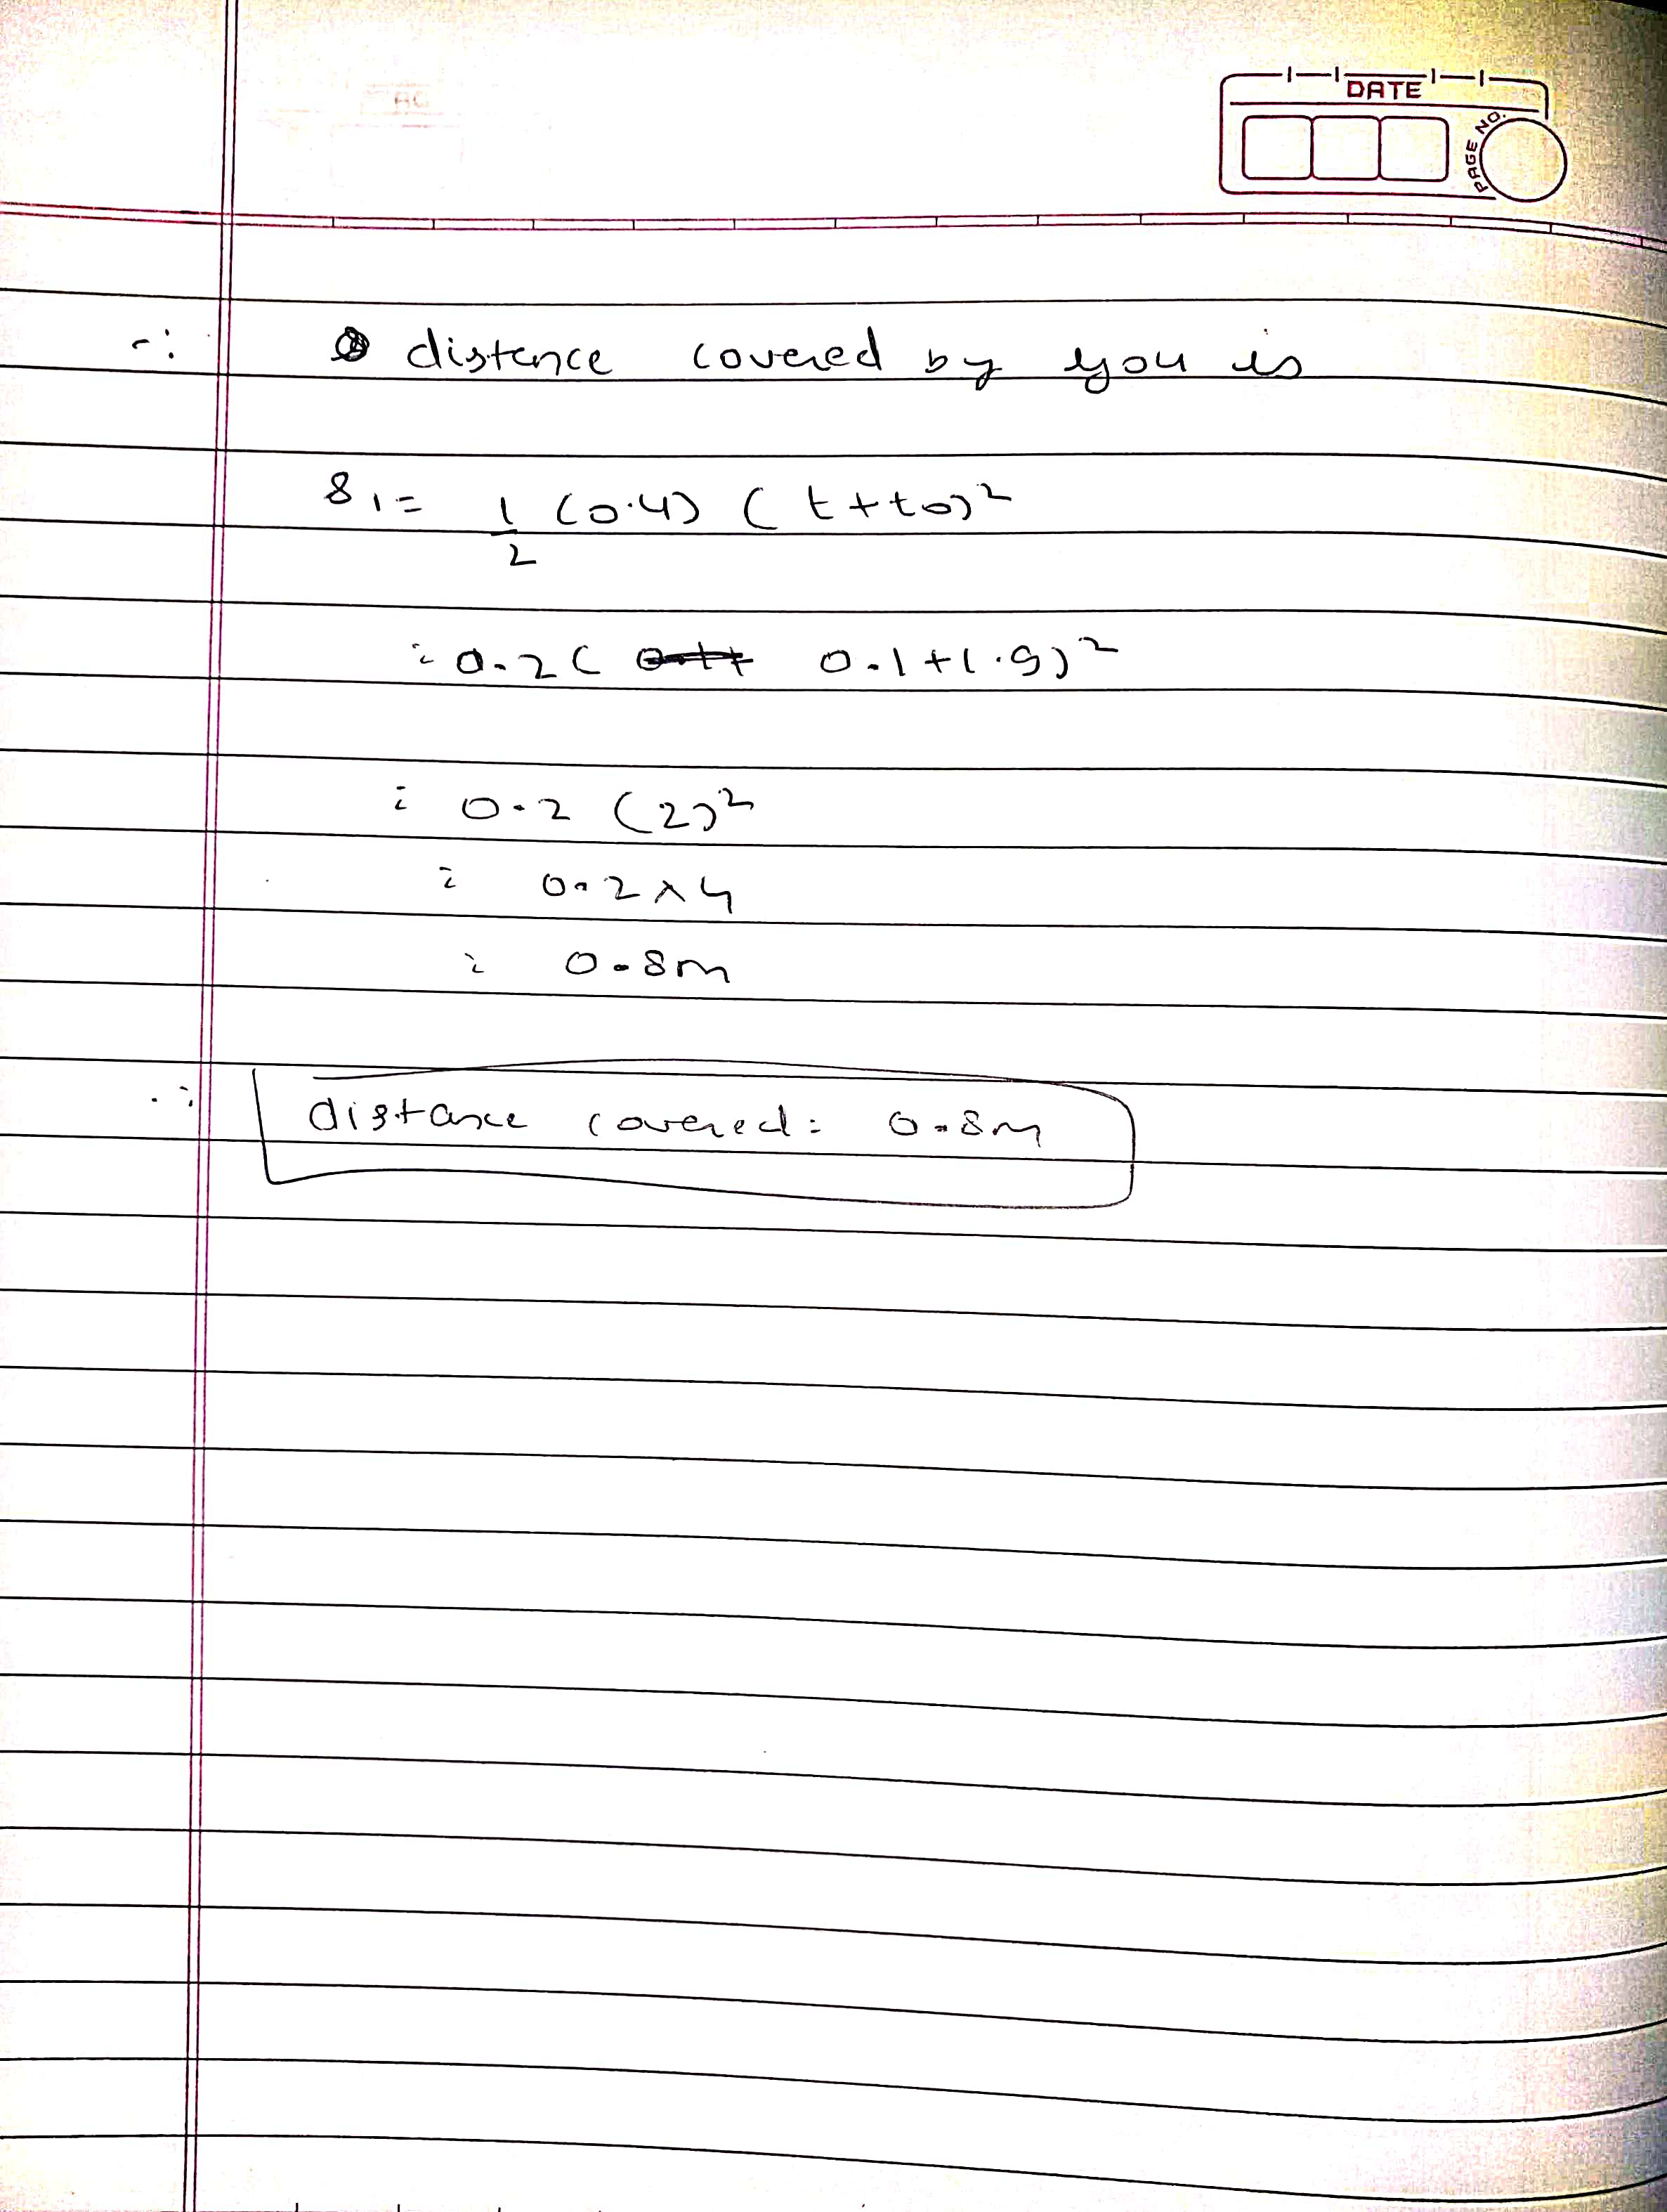 DATE
PAGE NO.
∴ distence covered by you is
S1 = 1/2 (0.4) (t+t0)²
= 0.2 ( 0.1+1.9)²
= 0.2 (2)²
= 0.2×4
= 0.8m
∴ distance covered = 0.8m